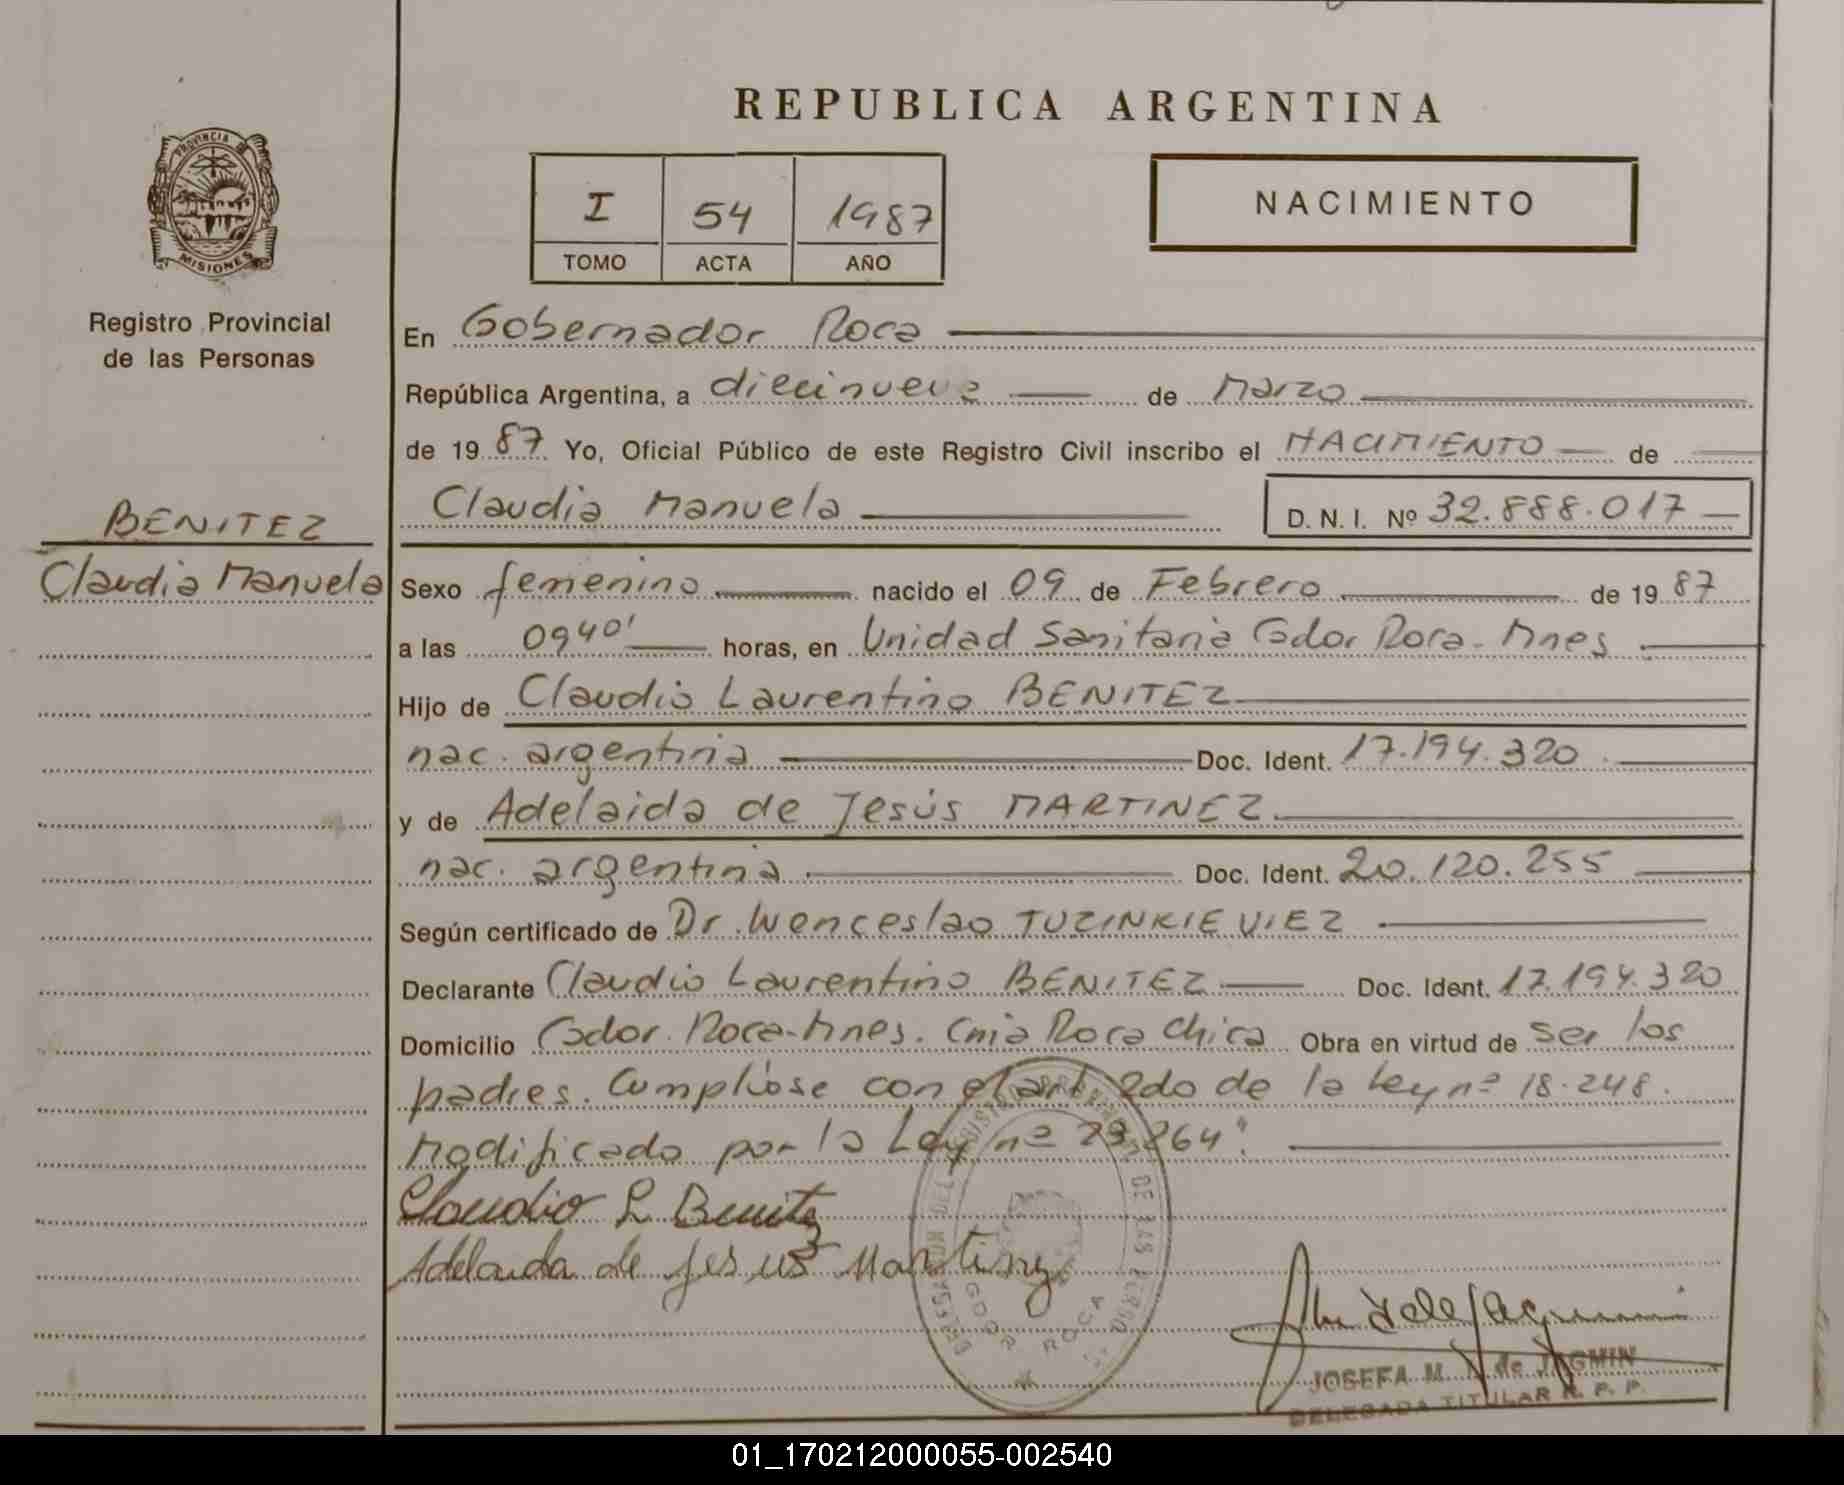 REPUBLICA ARGENTINA
PROVINCIA DE
MISIONES
Registro Provincial
de las Personas
I 54 1987
TOMO ACTA AÑO
NACIMIENTO
En Gobernador Roca
República Argentina, a diecinueve de Marzo
de 1987 Yo, Oficial Público de este Registro Civil inscribo el NACIMIENTO de
Claudia Manuela D. N. I. Nº 32.888.017
BENITEZ
Claudia Manuela
Sexo femenino nacido el 09 de Febrero de 1987
a las 0940' horas, en Unidad Sanitaria Gdor Roca - Mnes
Hijo de Claudio Laurentino BENITEZ
nac. argentina Doc. Ident. 17.194.320
y de Adelaida de Jesús MARTINEZ
nac. argentina Doc. Ident. 20.120.255
Según certificado de Dr. Wenceslao TUZINKIEVIEZ
Declarante Claudio Laurentino BENITEZ Doc. Ident. 17.194.320
Domicilio Gdor. Roca-Mnes. Cnia Roca Chica Obra en virtud de ser los
padres. Cumpliose con el art 2do de la Ley nº 18.248.
Modificado por la Ley nº 23.264".
Claudio L Benitez
Adelaida de Jesus Martinez
DE LAS PERSONAS
GDOR. ROCA
JOSEFA M. de JAGMIN
DELEGADA TITULAR R. P. P.
01_170212000055-002540